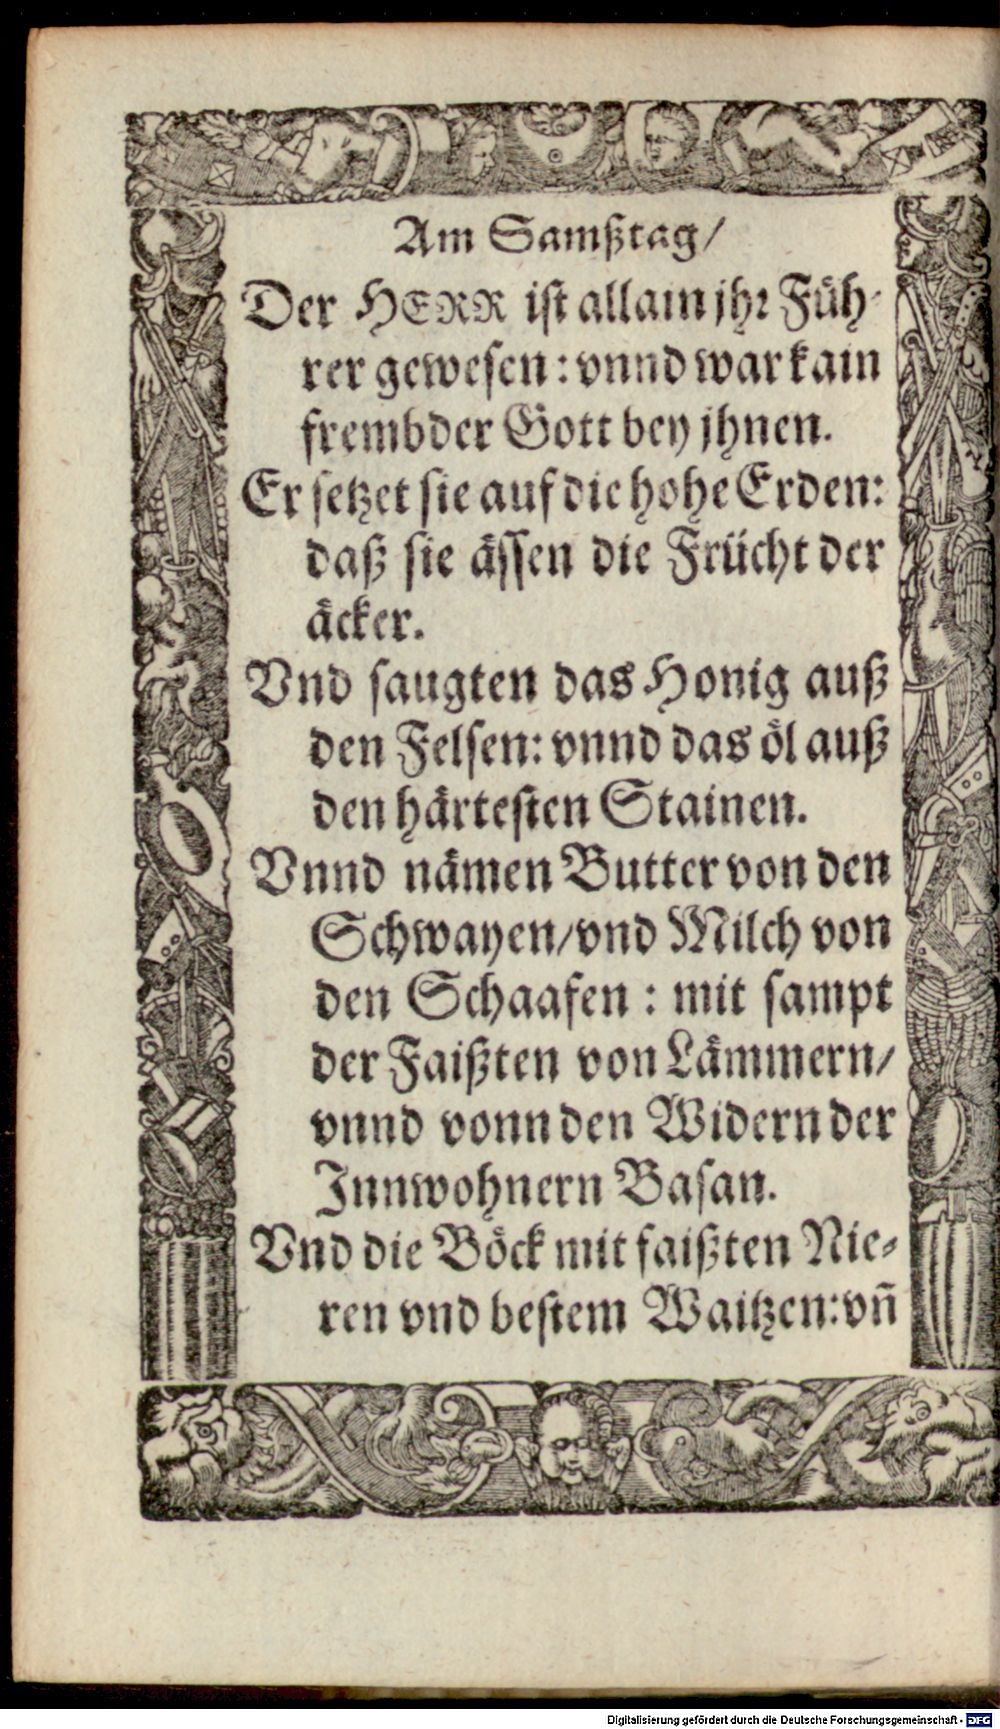 Am Samßtag/
Der HERR ist allain jhr Füh-
rer gewesen: vnnd war kain
frembder Gott bey jhnen.
Er setzet sie auf die hohe Erden:
daß sie ässen die Frücht der
äcker.
Vnd saugten das Honig auß
den Felsen: vnnd das öl auß
den härtesten Stainen.
Vnnd nämen Butter von den
Schwayen/vnd Milch von
den Schaafen: mit sampt
der Faißten von Lämmern/
vnnd vonn den Widern der
Innwohnern Basan.
Vnd die Böck mit faißten Nie-
ren vnd bestem Waitzen: vñ
Digitalisierung gefördert durch die Deutsche Forschungsgemeinschaft - DFG